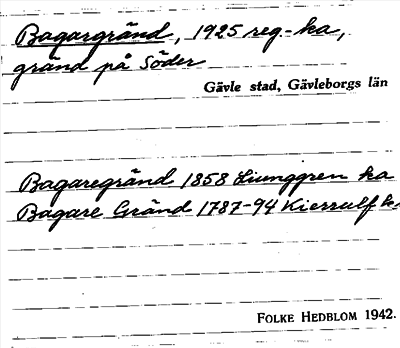 Bagargränd, 1925 reg.-ka,
gränd på Söder
Gävle stad, Gävleborgs län
Bagaregränd 1858 Ljunggren ka
Bagare Gränd 1787-94 Kierrulf ka
FOLKE HEDBLOM 1942.